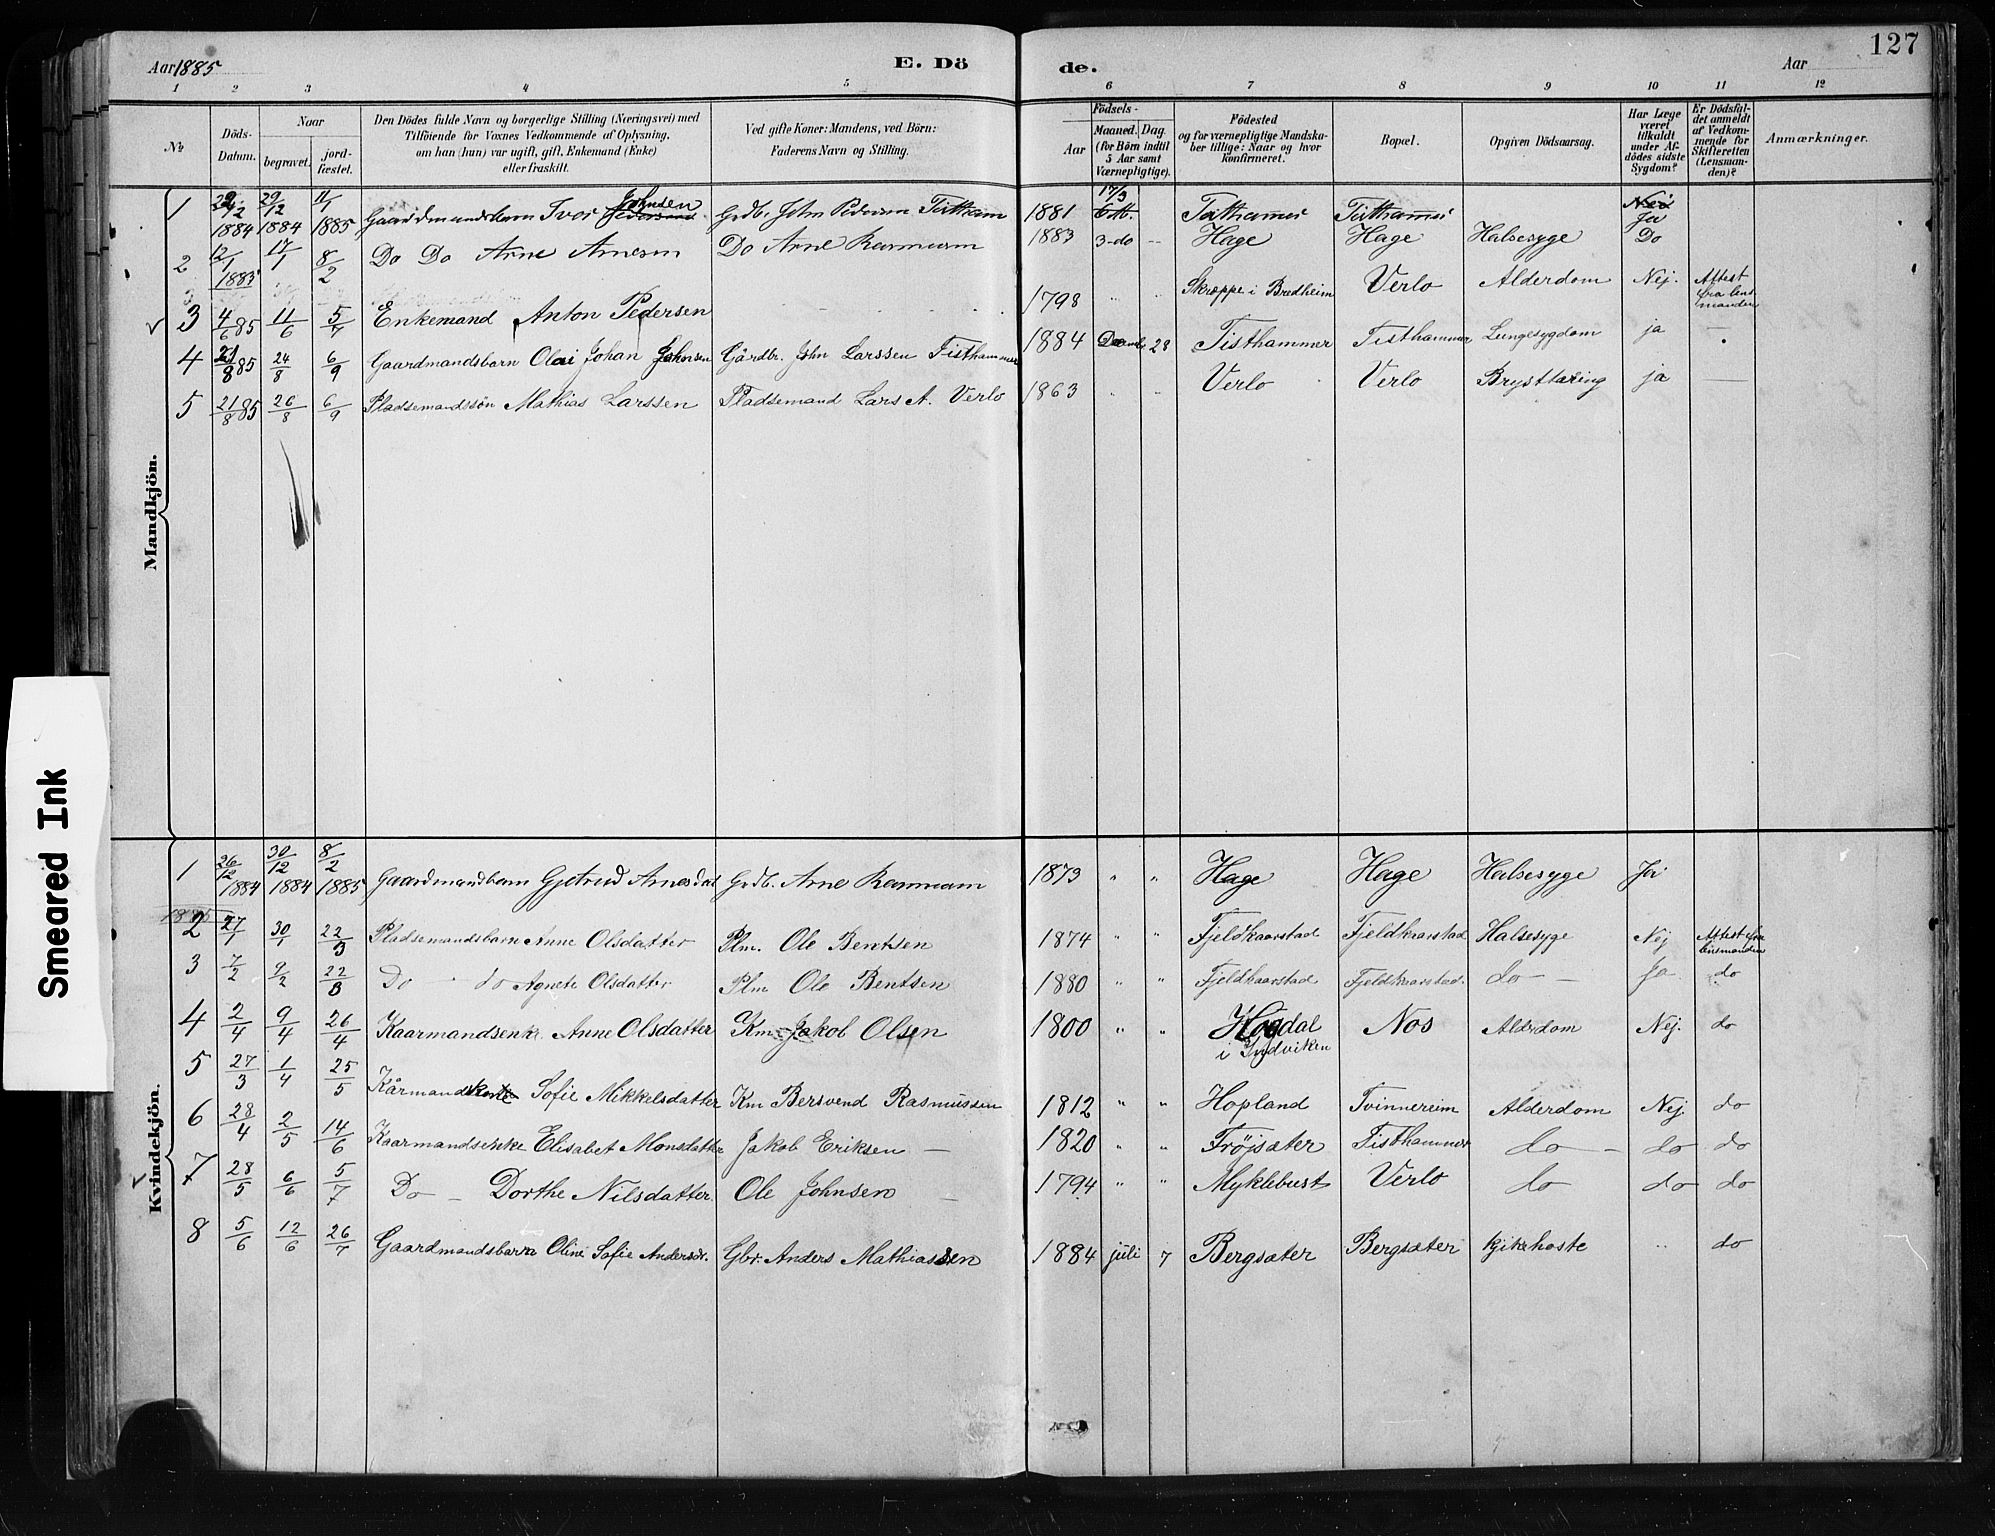 127
Aar 1885 E. Dö de. Aar
1 2 3 4 5 6 7 8 9 10 11 12
No Döds-Datum. Naar begravet. jordfæstet. Den Dödes fulde Navn og borgerlige Stilling (Næringsvei) med Tilföiende for Voxnes Vedkommende af Oplysning, om han (hun) var ugift, gift, Enkemand (Enke) eller fraskilt. Ved gifte Koner: Mandens, ved Börn: Faderens Navn og Stilling. Födsels- Aar Maaned. Dag. (for Börn indtil 5 Aar samt Værnepligtige). Födested og for værnepligtige Mandskaber tillige: Naar og hvor konfirmeret. Bopæl. Opgiven Dödsaarsag. Har Læge været tilkaldt under Afdödes sidste Sygdom? Er Dödsfaldet anmeldt af Vedkommende for Skifteretten (Lensmanden)? Anmærkninger.
Mandkjön.
1 1884 29/12 1884 11/1 1885 Gaardmandsbarn Iver Johnsen Grdb. John Pedersen Tisthamm 1881 17/3 Tisthammer Tisthammer Ja
2 12/1 1885 17/1 8/2 Do Do Arne Arnesen Do Arne Rasmussen 1883 3-do -- Hage Hage Halsesyge Do
3 4/6 85 11/6 5/7 Enkemand Anton Pedersen 1798 " " Skreppe i Bredheim Verlo Alderdom Nej. Attest fra lensmanden
4 21/8 85 24/8 6/9 Gaardmandsbarn Olai Johan Johnsen Gårdbr. John Larssen Tisthammer 1884 28 Tisthammer Tisthammer Lungesygdom ja —
5 21/8 85 26/8 6/9 Pladsemandssön Mathias Larssen Pladsemand Lars A. Verlo 1863 " " Verlo Verlo Brysttæring ja —
Kvindekjön.
1 26/12 1884 30/12 1884 8/2 1885 Gaardmandbarn Gjetrud Arnesdat Grdb. Arne Rasmussen 1873 " " Hage Hage Halsesyge Ja
1885
2 27/1 30/1 22/3 Pladsemandsbarn Anne Olsdatter Plm. Ole Bentsen 1874 " " Fjeldkaarstad Fjeldkaarstad Halsesyge Nej Attest fra lensmanden
3 7/2 9/2 22/3 Do - do Agnete Olsdatter Plm Ole Bentsen 1880 " " Fjeldkaarstad Fjeldkaarstad. do — Ja do
4 2/4 9/4 26/4 Kaarmandsenk. Anne Olsdatter Km. Jakob Olsen 1800 " " Hogdal i Indviken Nos Alderdom Nej. do
5 27/3 1/4 25/5 Kårmandskone Sofie Mikkelsdatter Km Bersvend Rasmussen 1812 " " Hopland Tvinnereim Alderdom Nej do
6 28/4 2/5 14/6 Kaarmandsenke Elisabet Monsdatter Jakob Eriksen — 1820 " " Fröjsæter Tisthammer do — do do
7 28/5 6/6 5/7 Do — Dorthe Nilsdatter. Ole Johnsen — 1794 " " Myklebust Verlo do do do
8 5/6 12/6 26/7 Gaardmandsbarn Oline Sofie Andersdr. Gbr. Anders Mathiassen 1884 juli 7 Bergsæter Bergsæter kjikhoste " do
Smeared Ink